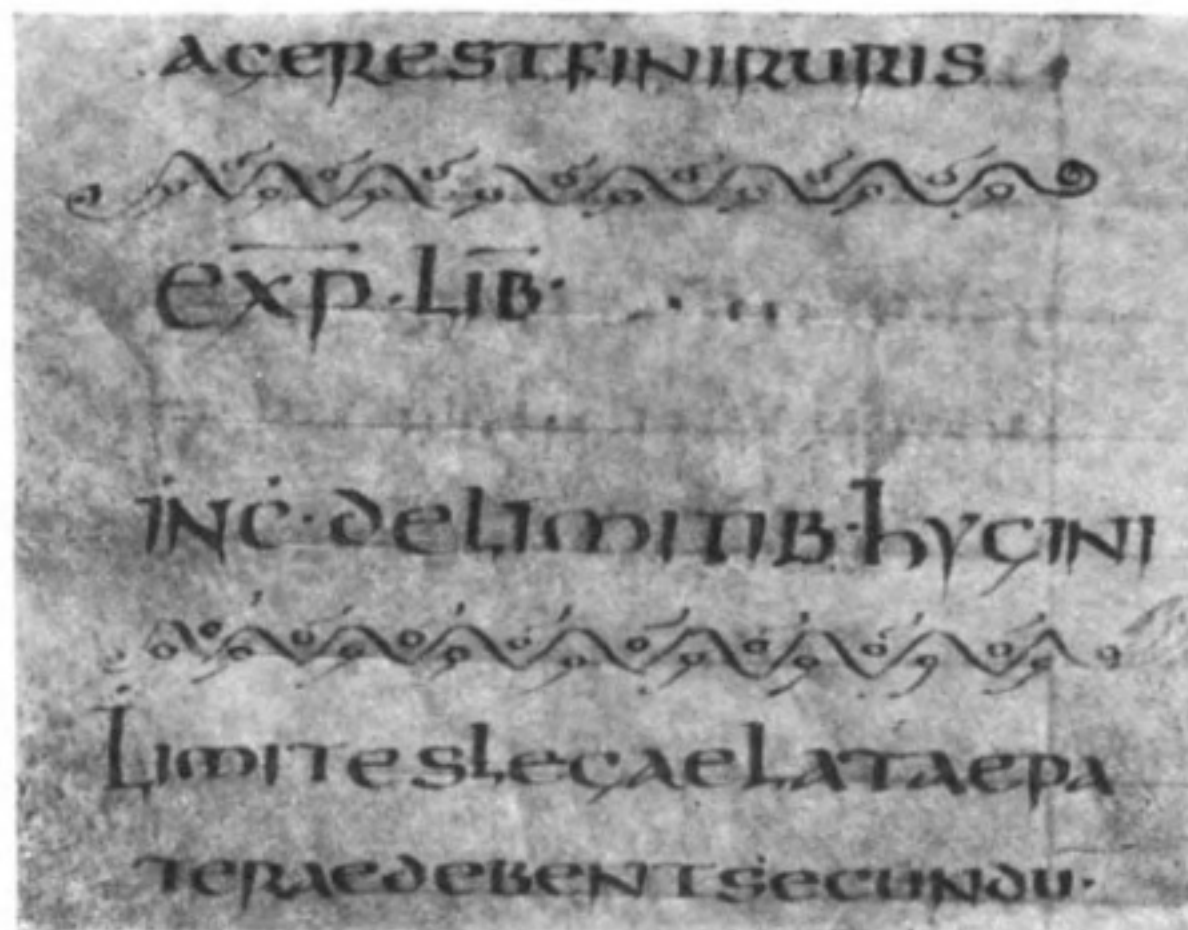 ACERESTFINIRURIS
EXP·LIB·
INC·DELIMITIB·HYGINI
LIMITESLEGAELATAEPA
TERAEDEBENTSECUNDU·